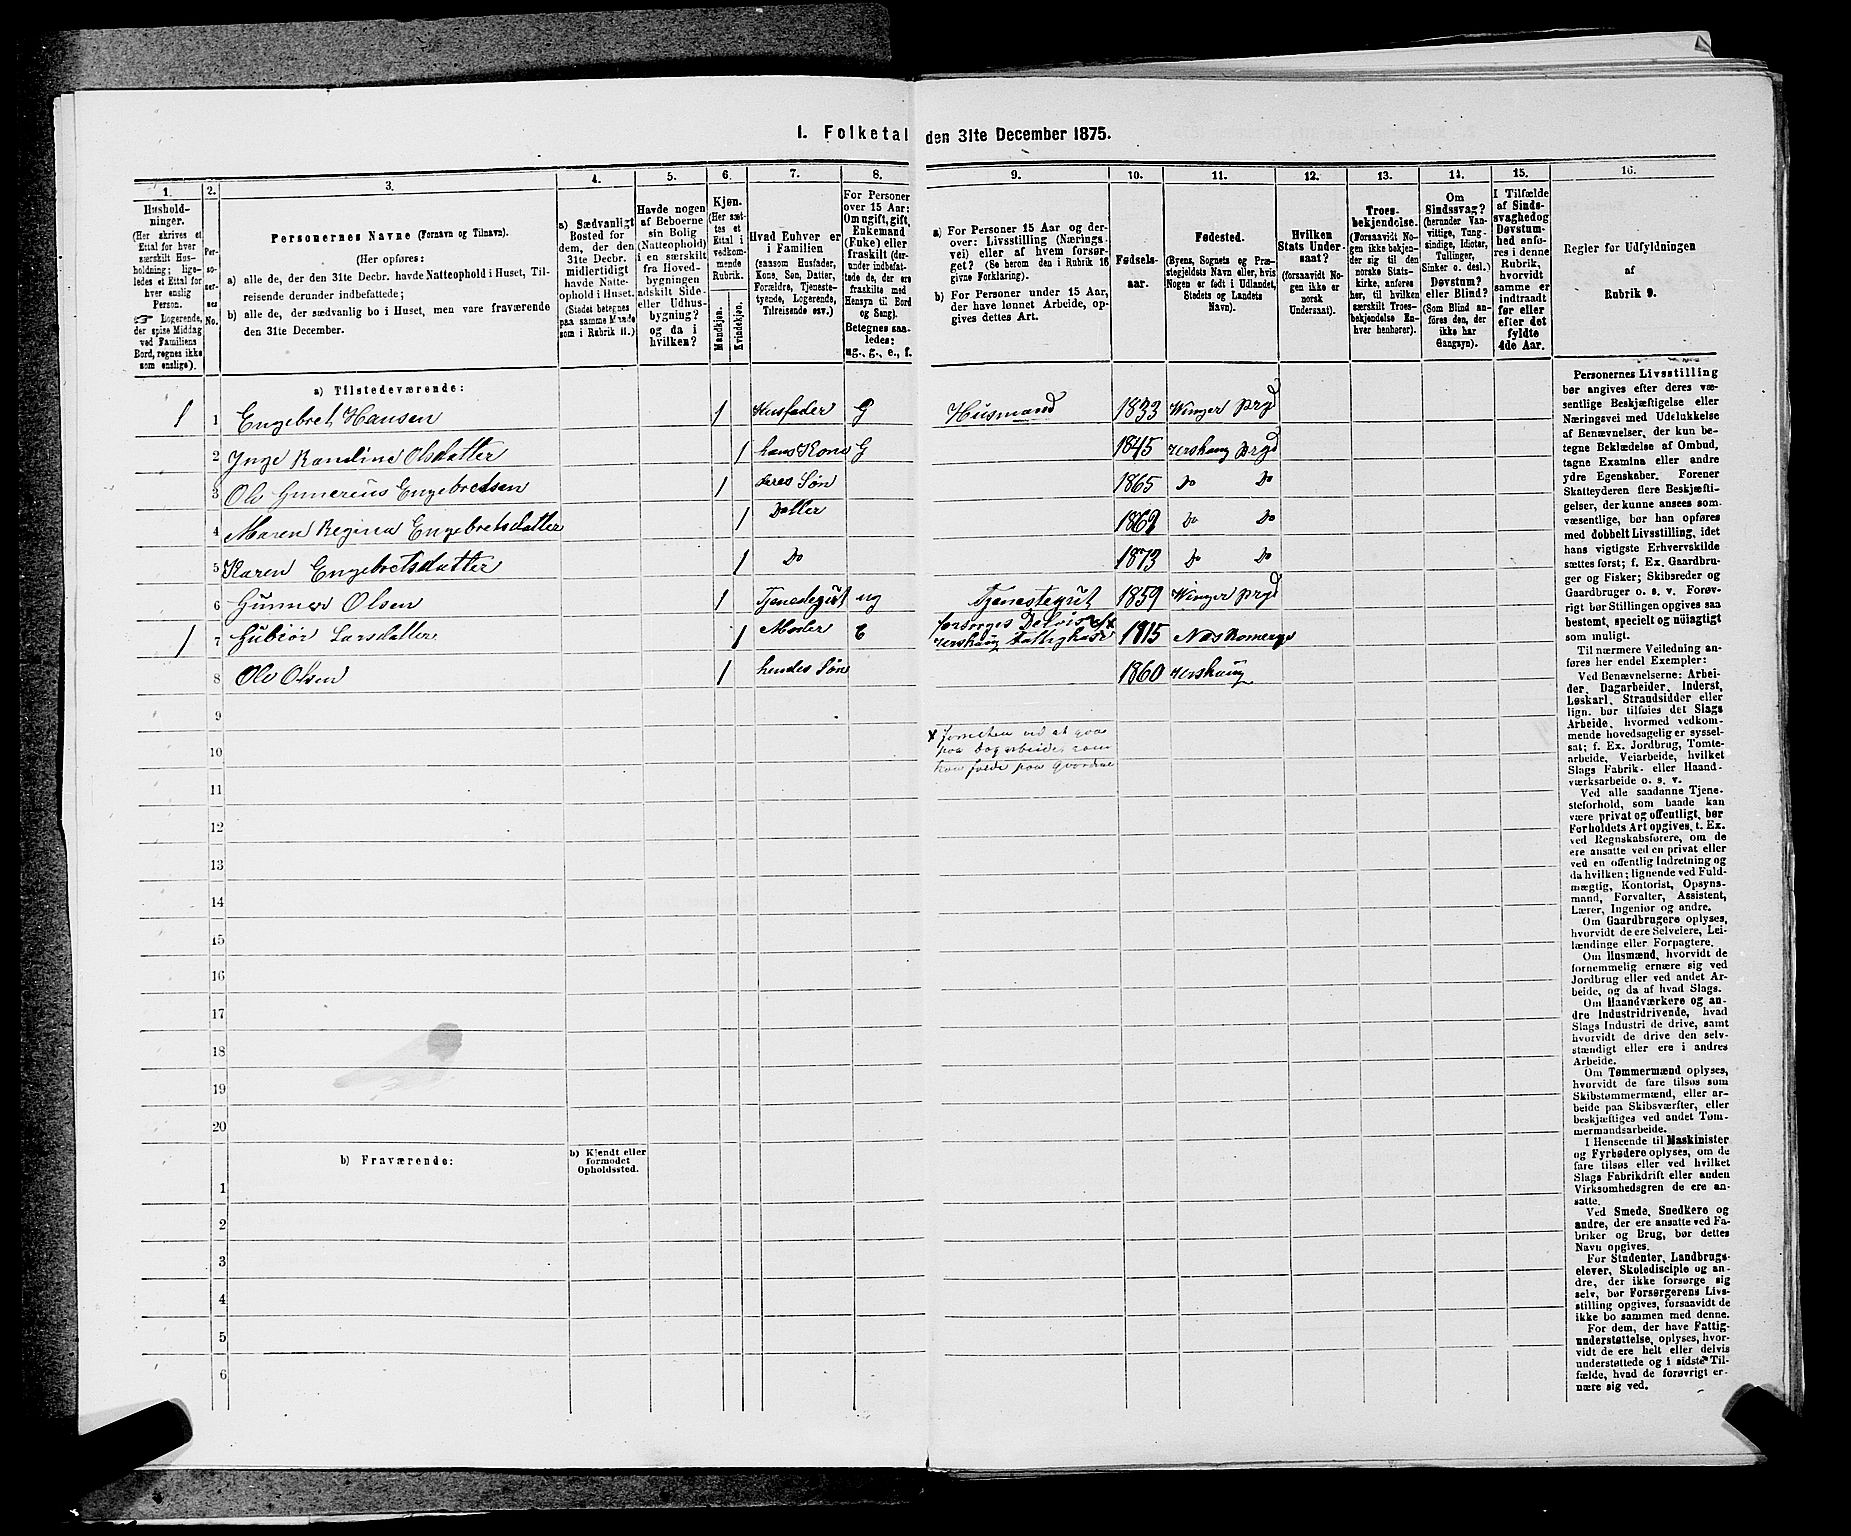 I. Folketal den 31te December 1875.
1. 2. 3. 4. 5. 6. 7. 8. 9. 10. 11. 12. 13. 14. 15. 16.
Hushold-
ninger.
(Her skrives et
Ettal for hver
særskilt Hus-
holdning; lige-
ledes et Ettal for
hver enslig
Person.
☞ Logerende,
der spise Middag
ved Familiens
Bord, regnes ikke
som enslige).
Per-
so-
ner-
nes
No.
Personernes Navne (Fornavn og Tilnavn).
(Her opføres:
a) alle de, der den 31te Decbr. havde Natteophold i Huset, Til-
reisende derunder indbefattede;
b) alle de, der sædvanlig bo i Huset, men vare fraværende
den 31te December.
a) Sædvanligt
Bosted for
dem, der den
31te Decbr.
midlertidigt
havde Natte-
ophold i Huset.
(Stedet betegnes
paa samme Maade
som i Rubrik 11.)
Havde nogen
af Beboerne
sin Bolig
(Natteophold)
i en særskilt
fra Hoved-
bygningen
adskilt Side-
eller Udhus-
bygning?
og da i
hvilken?
Kjøn.
(Her sæt-
tes et
Ettal i
vedkom-
mende
Rubrik.
Mandkjøn.
Kvindekjøn.
Hvad Enhver er
i Familien
(saasom Husfader,
Kone, Søn, Datter,
Forældre, Tjeneste-
tyende, Logerende,
Tilreisende osv.)
For Personer
over 15 Aar:
Om ugift, gift,
Enkemand
(Enke) eller
fraskilt (der-
under indbefat-
tede de, der ere
fraskilte med
Hensyn til Bord
og Seng).
Betegnes saa-
ledes:
ug., g., e., f.
a) For Personer 15 Aar og der-
over: Livsstilling (Nærings-
vei) eller af hvem forsør-
get? (Se herom den i Rubrik 16
givne Forklaring).
b) For Personer under 15 Aar,
der have lønnet Arbeide, op-
gives dettes Art.
Fødsels-
aar.
Fødested.
(Byens, Sognets og Præ-
stegjeldets Navn eller, hvis
Nogen er født i Udlandet,
Stedets og Landets
Navn).
Hvilken
Stats Under-
saat?
(forsaavidt No-
gen ikke er
norsk
Undersaat).
Troes-
bekjendelse.
(Forsaavidt No-
gen ikke bekjen-
der sig til den
norske Stats-
kirke, anføres
her, til hvilken
særskilt Troes-
bekjendelse En-
hver henhører).
Om
Sindssvag?
(herunder Van-
vittige, Tung-
sindige, Idioter,
Tullinger,
Sinker o. desl.)
Døvstum?
eller Blind?
(Som Blind an-
føres den, der
ikke har
Gangsyn).
I Tilfælde
af Sinds-
svaghed og
Døvstum-
hed anfø-
res i denne
Rubrik,
hvorvidt
samme er
indtraadt
før eller
efter det
fyldte
4de Aar.
Regler for Udfyldningen
af
Rubrik 9.
a) Tilstedeværende:
1 1 Engebret Hansen 1 Husfader G Husmand 1833 Winger prgd
2 Inge Randine Olsdatter 1 hans Kone G 1845 prgd
3 Ole Gunerius Engebretsen 1 deres Søn 1865 Do Do
4 Maren Regina Engebretsdatter 1 Datter 1869 Do Do
5 Karen Engebretsdatter 1 Do 1873 Do Do
6 Gunner Olsen 1 Tjenestegut ug Tjenestegut 1859 Winger prgd
1 7 Larsdatter 1 Moder E forsørges Delvis af x
Fattigkasse 1815 Nes Romerge
8 Ole Olsen 1 hendes Søn 1860
9
x ved at gaa
10 paa Dagarbeide som
paa Gaardene
11
12
13
14
15
16
17
18
19
20
b) Fraværende:
b) Kjendt eller
formodet
Opholdssted.
1
2
3
4
5
6
Personernes Livsstilling
bør angives efter deres væ-
sentlige Beskjæftigelse eller
Næringsvei med Udelukkelse
af Benævnelser, der kun be-
tegne Beklædelse af Ombud,
tagne Examina eller andre
ydre Egenskaber. Forener
Skatteyderen flere Beskjæfti-
gelser, der kunne ansees som
væsentlige, bør han opføres
med dobbelt Livsstilling, idet
hans vigtigste Erhvervskilde
sættes først; f. Ex. Gaardbru-
ger og Fisker; Skibsreder og
Gaardbruger o. s. v. Forøv-
rigt bør Stillingen opgives saa
bestemt, specielt og nøiagtigt
som muligt.
Til nærmere Veiledning an-
føres her endel Exempler:
Ved Benævnelserne: Arbei-
der, Dagarbeider, Inderst,
Løskarl, Strandsidder eller
lign. bør tilføies det Slags
Arbeide, hvormed vedkom-
mende hovedsagelig er syssel-
sat; f. Ex. Jordbrug, Tomte-
arbeide, Veiarbeide, hvilket
Slags Fabrik- eller Haand-
værksarbeide o. s. v.
Ved alle saadanne Tjene-
steforhold, som baade kan
være privat og offentligt, bør
Forholdets Art opgives, t. Ex.
ved Regnskabsførere, om de
ere ansatte ved en privat eller
ved en offentlig Indretning og
da hvilken; lignende ved Fuld-
mægtig, Kontorist, Opsyns-
mand, Forvalter, Assistent,
Lærer, Ingeniør og andre.
Om Gaardbrugere oplyses,
hvorvidt de ere Selveiere, Lei-
lændinge eller Forpagtere.
Om Husmænd, hvorvidt de
fornemmelig ernære sig ved
Jordbrug eller ved andet Ar-
beide, og da af hvad Slags.
Om Haandværkere og an-
dre Industridrivende, hvad
Slags Industri de drive, samt
hvorvidt de drive den selv-
stændigt eller ere i andres
Arbeide.
Om Tømmermænd oplyses,
hvorvidt de fare tilsøs som
Skibstømmermænd, eller ar-
beide paa Skibsværfter, eller
beskjæftiges ved andet Tøm-
mermandsarbeide.
I Henseende til Maskinister
og Fyrbødere oplyses, om de
fare tilsøs eller ved hvilket
Slags Fabrikdrift eller anden
Virksomhedsgren de ere an-
satte.
Ved Smede, Snedkere og
andre, der ere ansatte ved Fa-
briker og Brug, bør dettes
Navn opgives.
For Studenter, Landbrugs-
elever, Skoledisciple og an-
dre, der ikke forsørge sig
selv, bør Forsørgerens Livs-
stilling opgives, forsaavidt de
ikke bo sammen med denne.
For dem, der have Fattig-
understøttelse, oplyses, hvor-
vidt de ere helt eller delvis
understøttede og i sidste Til-
fælde, hvad de forøvrigt er-
nære sig ved.